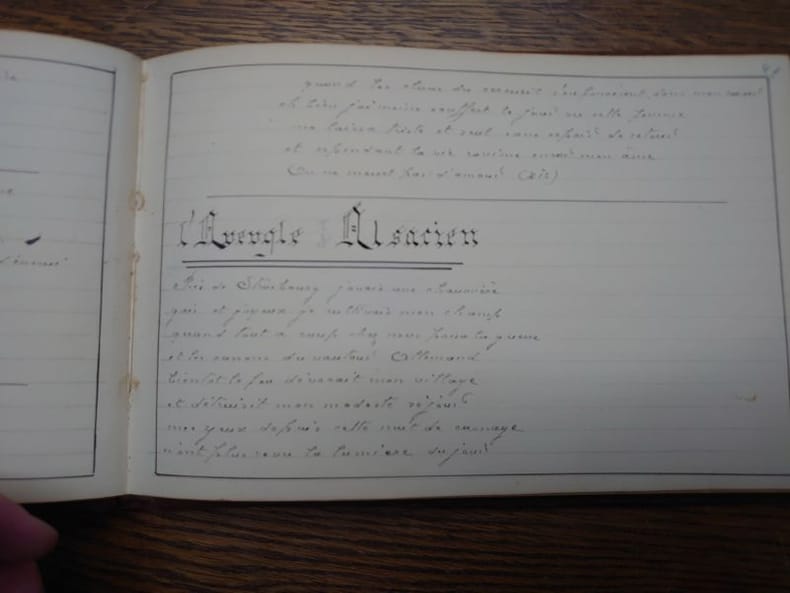 quand les clous du cercueil s'enfonçaient dans mon
eh bien j'ai moins souffert le jour ou cette femme
me laissa triste et seul sans espoir de retour
et cependant la vie ranime encor mon âme
On ne meurt pas d'amour (Bis)
l'Aveugle Alsacien
Près de Strasbourg j'avais une chaumière
gai et joyeux je cultivais mon champ
quand tout a coup chez nous la guerre
et les canons du vautour Allemand
bientôt le feu dévorait mon village
et détruisit mon modeste séjour
mes yeux depuis cette nuit de carnage
n'ont plus revu la lumière du jour